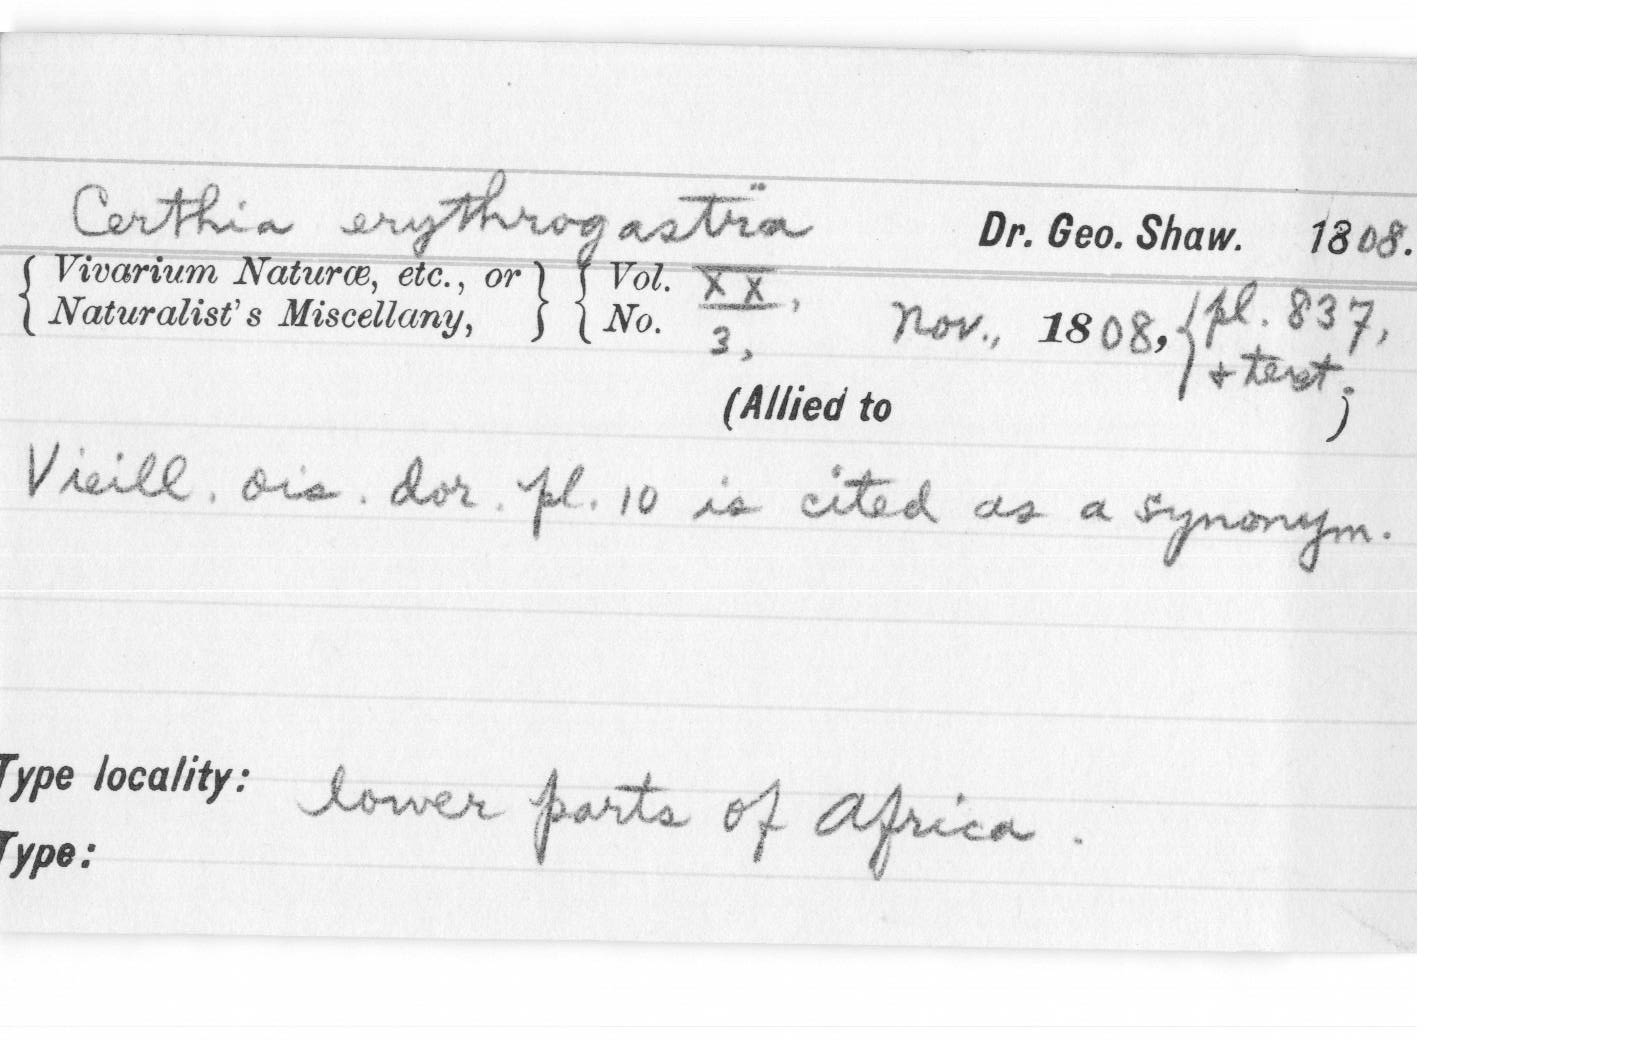 Certhia erythrogasträa Dr. Geo. Shaw. 1808.
{ Vivarium Naturæ, etc., or } { Vol. XX,
{ Naturalist's Miscellany, } { No. 3, Nov., 1808, { pl. 837,
+ text.
(Allied to )
Vieill. ois. dor. pl. 10 is cited as a synonym.
Type locality: lower parts of Africa.
Type: